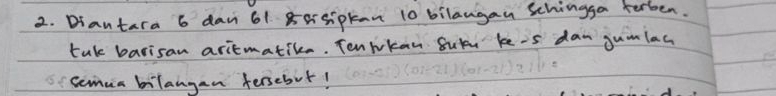 2. Diantara 6 dan 61 disisipkan 10 bilangan sehingga terben-
tuk barisan aritmatika. Tentukan suku ke-5 dan jumlah
semua bilangan tersebut!